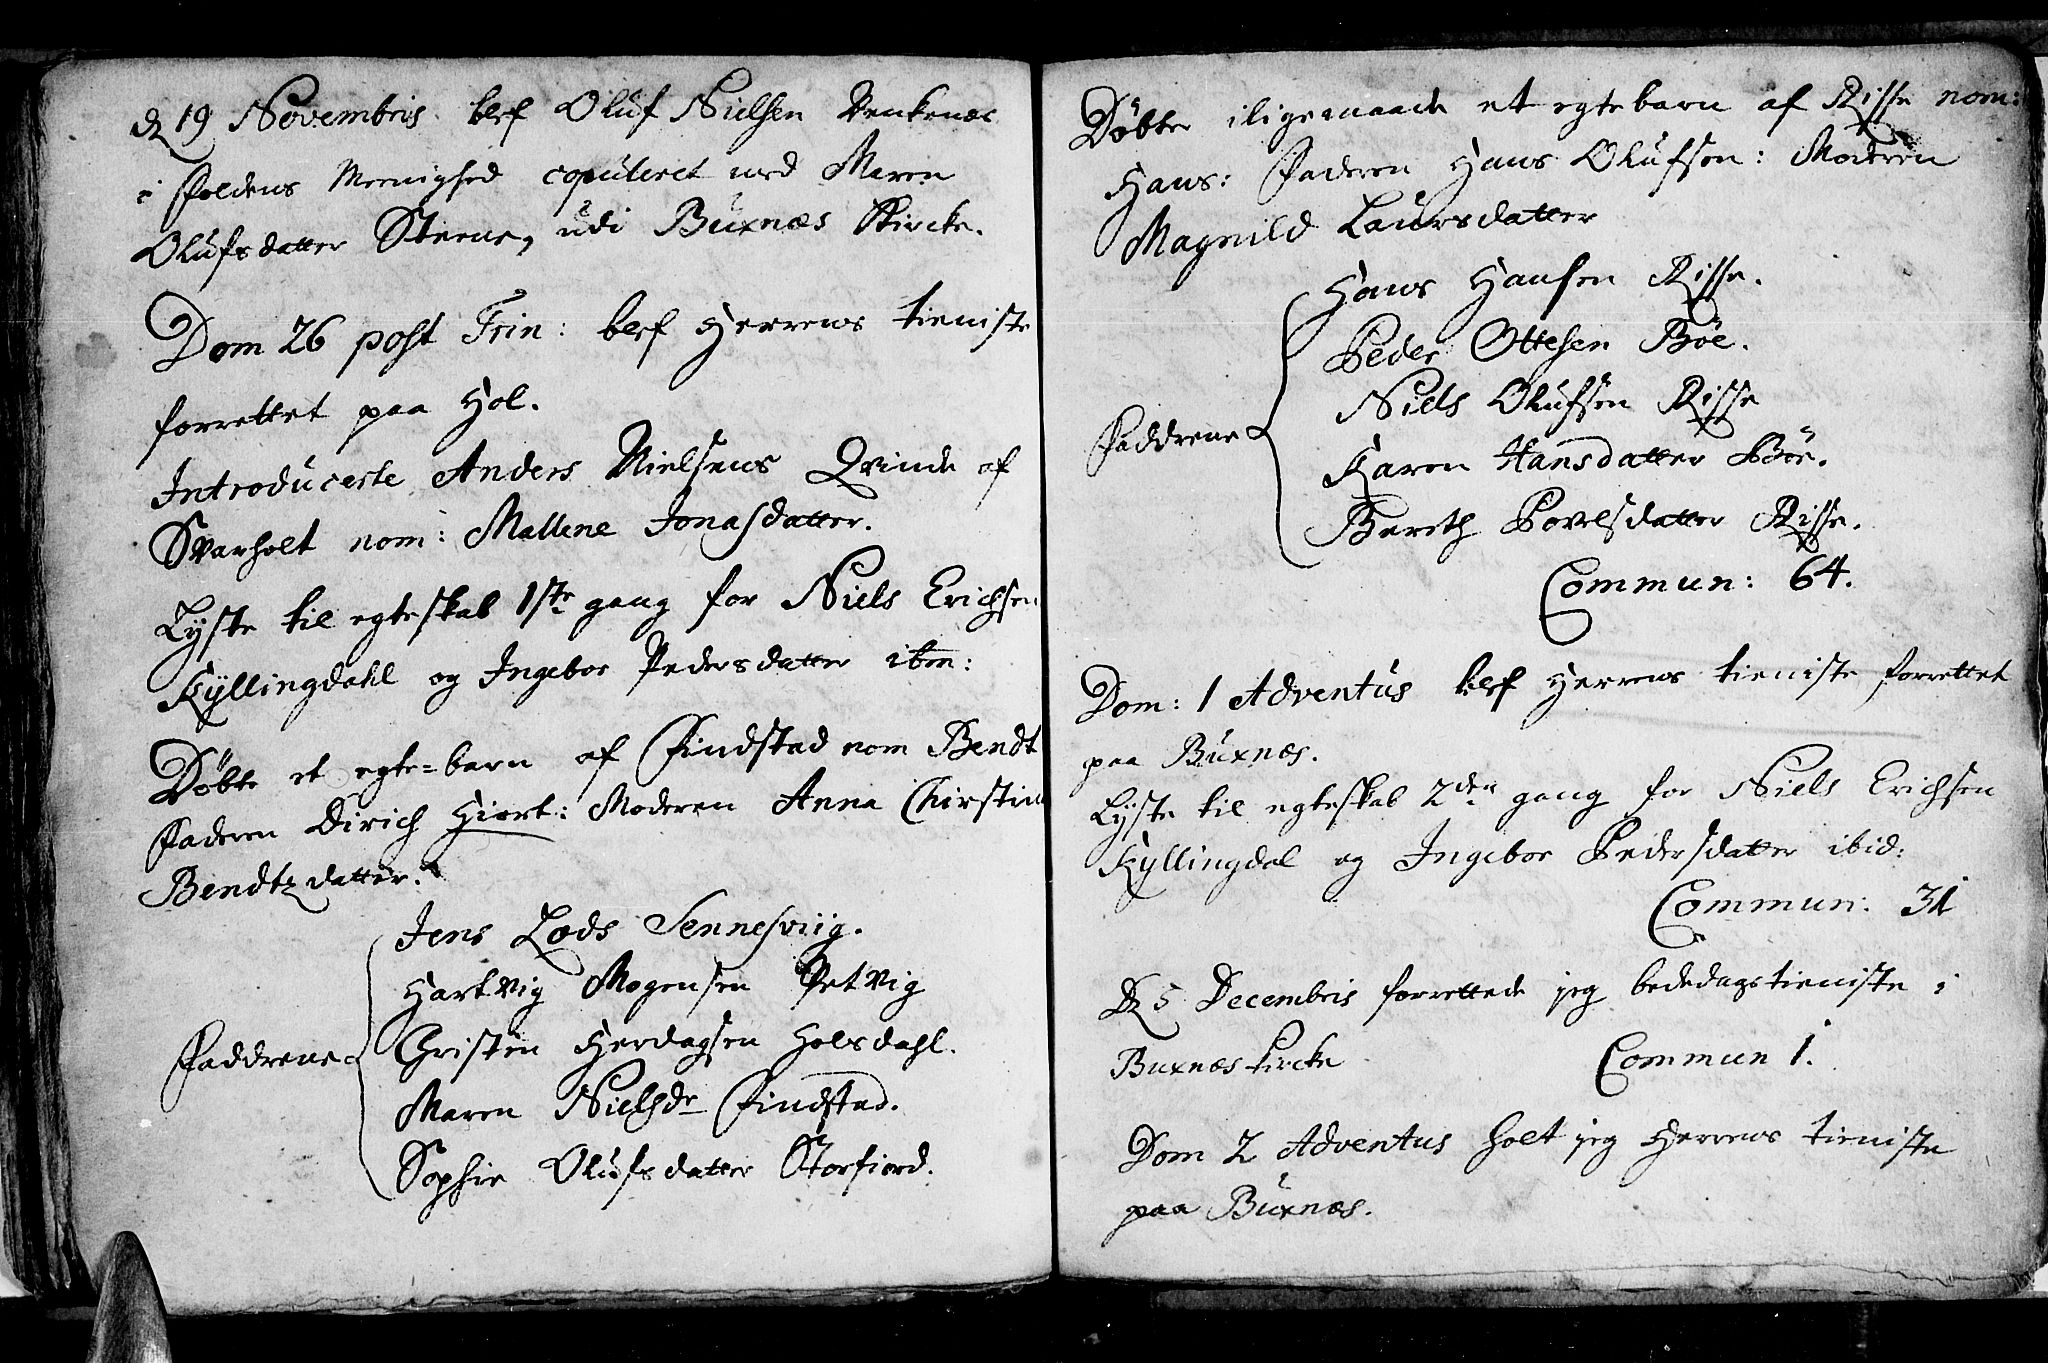 d 19 Novembris blef Oluf Nielsen Venkenæs
i Foldens Meenighed copuleret med Maren
Olufsdatter Steene, udi Buxnæs Kircke.
Dom 26 post Trin: blef Herrens tieniste
forrettet paa Hol.
Introducerte Anders Nielsens Qvinde af
Svarholt nom: Mallene Jonasdatter.
Lyste til egteskab 1ste gang for Niels Erichsen
Kyllingdahl og Ingebor Pedersdatter ibm:
Døbte et egte=barn af Findstad nom Bendt
Faderen Dirich Hiort: Moderen Anna Chirstine
Bendtzdatter.
Jens Lods Sennesviig.
Hartvig Mogensen Petvig
Faddrene Christen Herdagsen Holsdahl.
Maren Nielsdr Findstad.
Sophie Olufsdatter Storfiord.
Døbte iligemaade et egtebarn af Risse nom:
Hans: Faderen Hans Olufsen: Moderen
Magnild Laursdatter
Hans Hansen Risse.
Peder Ottesen Bøe.
Faddrene Niels Olufsen Risse
Karen Hansdatter Bøe.
Bereth Povelsdatter Risse.
Commun: 64.
Dom: 1 Adventus blef Herrens tieniste forrettet
paa Buxnæs.
Lyste til egteskab 2den gang for Niels Erichsen
Kyllingdal og Ingebor Pedersdatter ibid:
Commun: 31
D 5 Decembris forrettede jeg bededagstieniste i
Buxnæs kircke Commun 1.
Dom 2 Adventus holt jeg Herrens tieniste
paa Buxnæs.